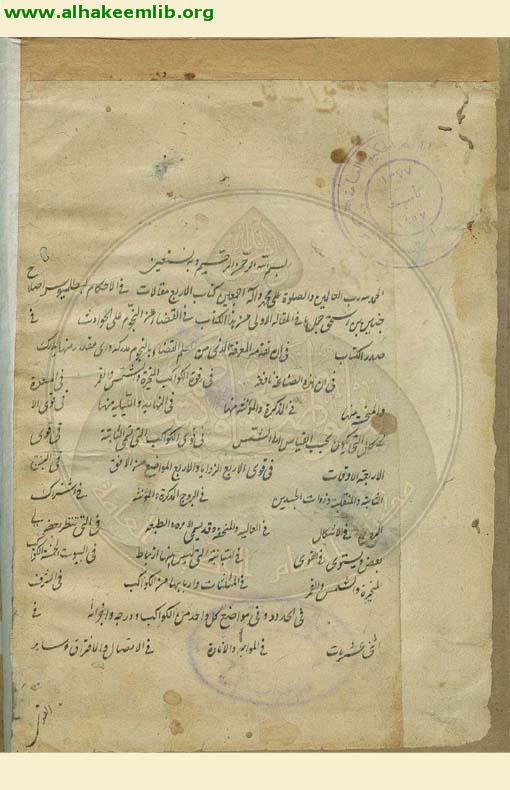 www.alhakeemlib.org
بسم الله الرحمن الرحيم وبه نستعين
الحمد لله رب العالمين والصلوة على محمد وآله اجمعين كتاب الاربع مقالات في الاحكام لبطلميوس اصلاح
حنين بن اسحق جمل ما في المقالة الاولى من هذا الكتاب في القضاء من النجوم على الحوادث في
صدر الكتاب في ان تقدمة المعرفة الذي من علم القضاء بالنجوم مدركة واي مقدار منها يدرك
في ان هذه الصناعة نافعة في قوى الكواكب المتحيرة والشمس والقمر في المسعدة
والمنحسة منها في المذكرة والمؤنثة منها في النهارية والليلية منها في قوى الا
التي تكون بحسب القياس الى الشمس في قوى الكواكب التي تسمى الثابتة في قوى
الاربعة الاوقات في قوى الاربع الزوايا والاربع المواضع من الافق في البروج
الثابتة والمنقلبة وذوات الجسدين في البروج المذكرة والمؤنثة في اشتراك
في الاشكال في العالية والمنخفضة في التي تنظر بعضها الى
بعض ويستوي في القوى في المتباينة التي ليس بينها ارتباط في البيوت الخمسة الكواكب
المتحيرة والشمس والقمر في المثلثات واربابها من الكواكب في الشرف
في الحدود وفي مواضع كل واحد من الكواكب ودرجه واجزائه في
اثنى عشريات في المواجهة والانارة في الاتصال والافتراق وسائر
القوى
١٣٧٧